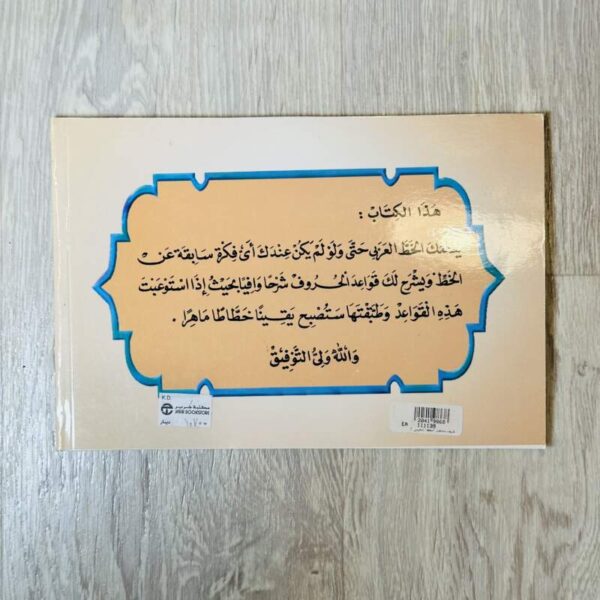 هَذَا الكِتَابْ :
يُعَلِّمُكَ الخَطَّ العَرَبِي حَتَّى وَلَوْ لَمْ يَكُنْ عِنْدَكَ أَىّ فِكْرَةٍ سَابِقَةٍ عَنْ
الخَطّ وَيَشْرَح لَكَ قَوَاعِدَ الْحُرُوفْ شَرْحًا وَافِيًا بِحَيْثُ إِذَا اسْتَوْعَبْتَ
هَذِهِ القَوَاعِدْ وَطَبَّقْتَهَا سَتُصْبِح يَقِينًا خَطَّاطًا مَاهِرًا .
وَاللَّهُ وَلِيُّ التَّوْفِيقْ
K.D.
مكتبة جرير
JARIR BOOKSTORE
دينار
2041 9868
EA 111139